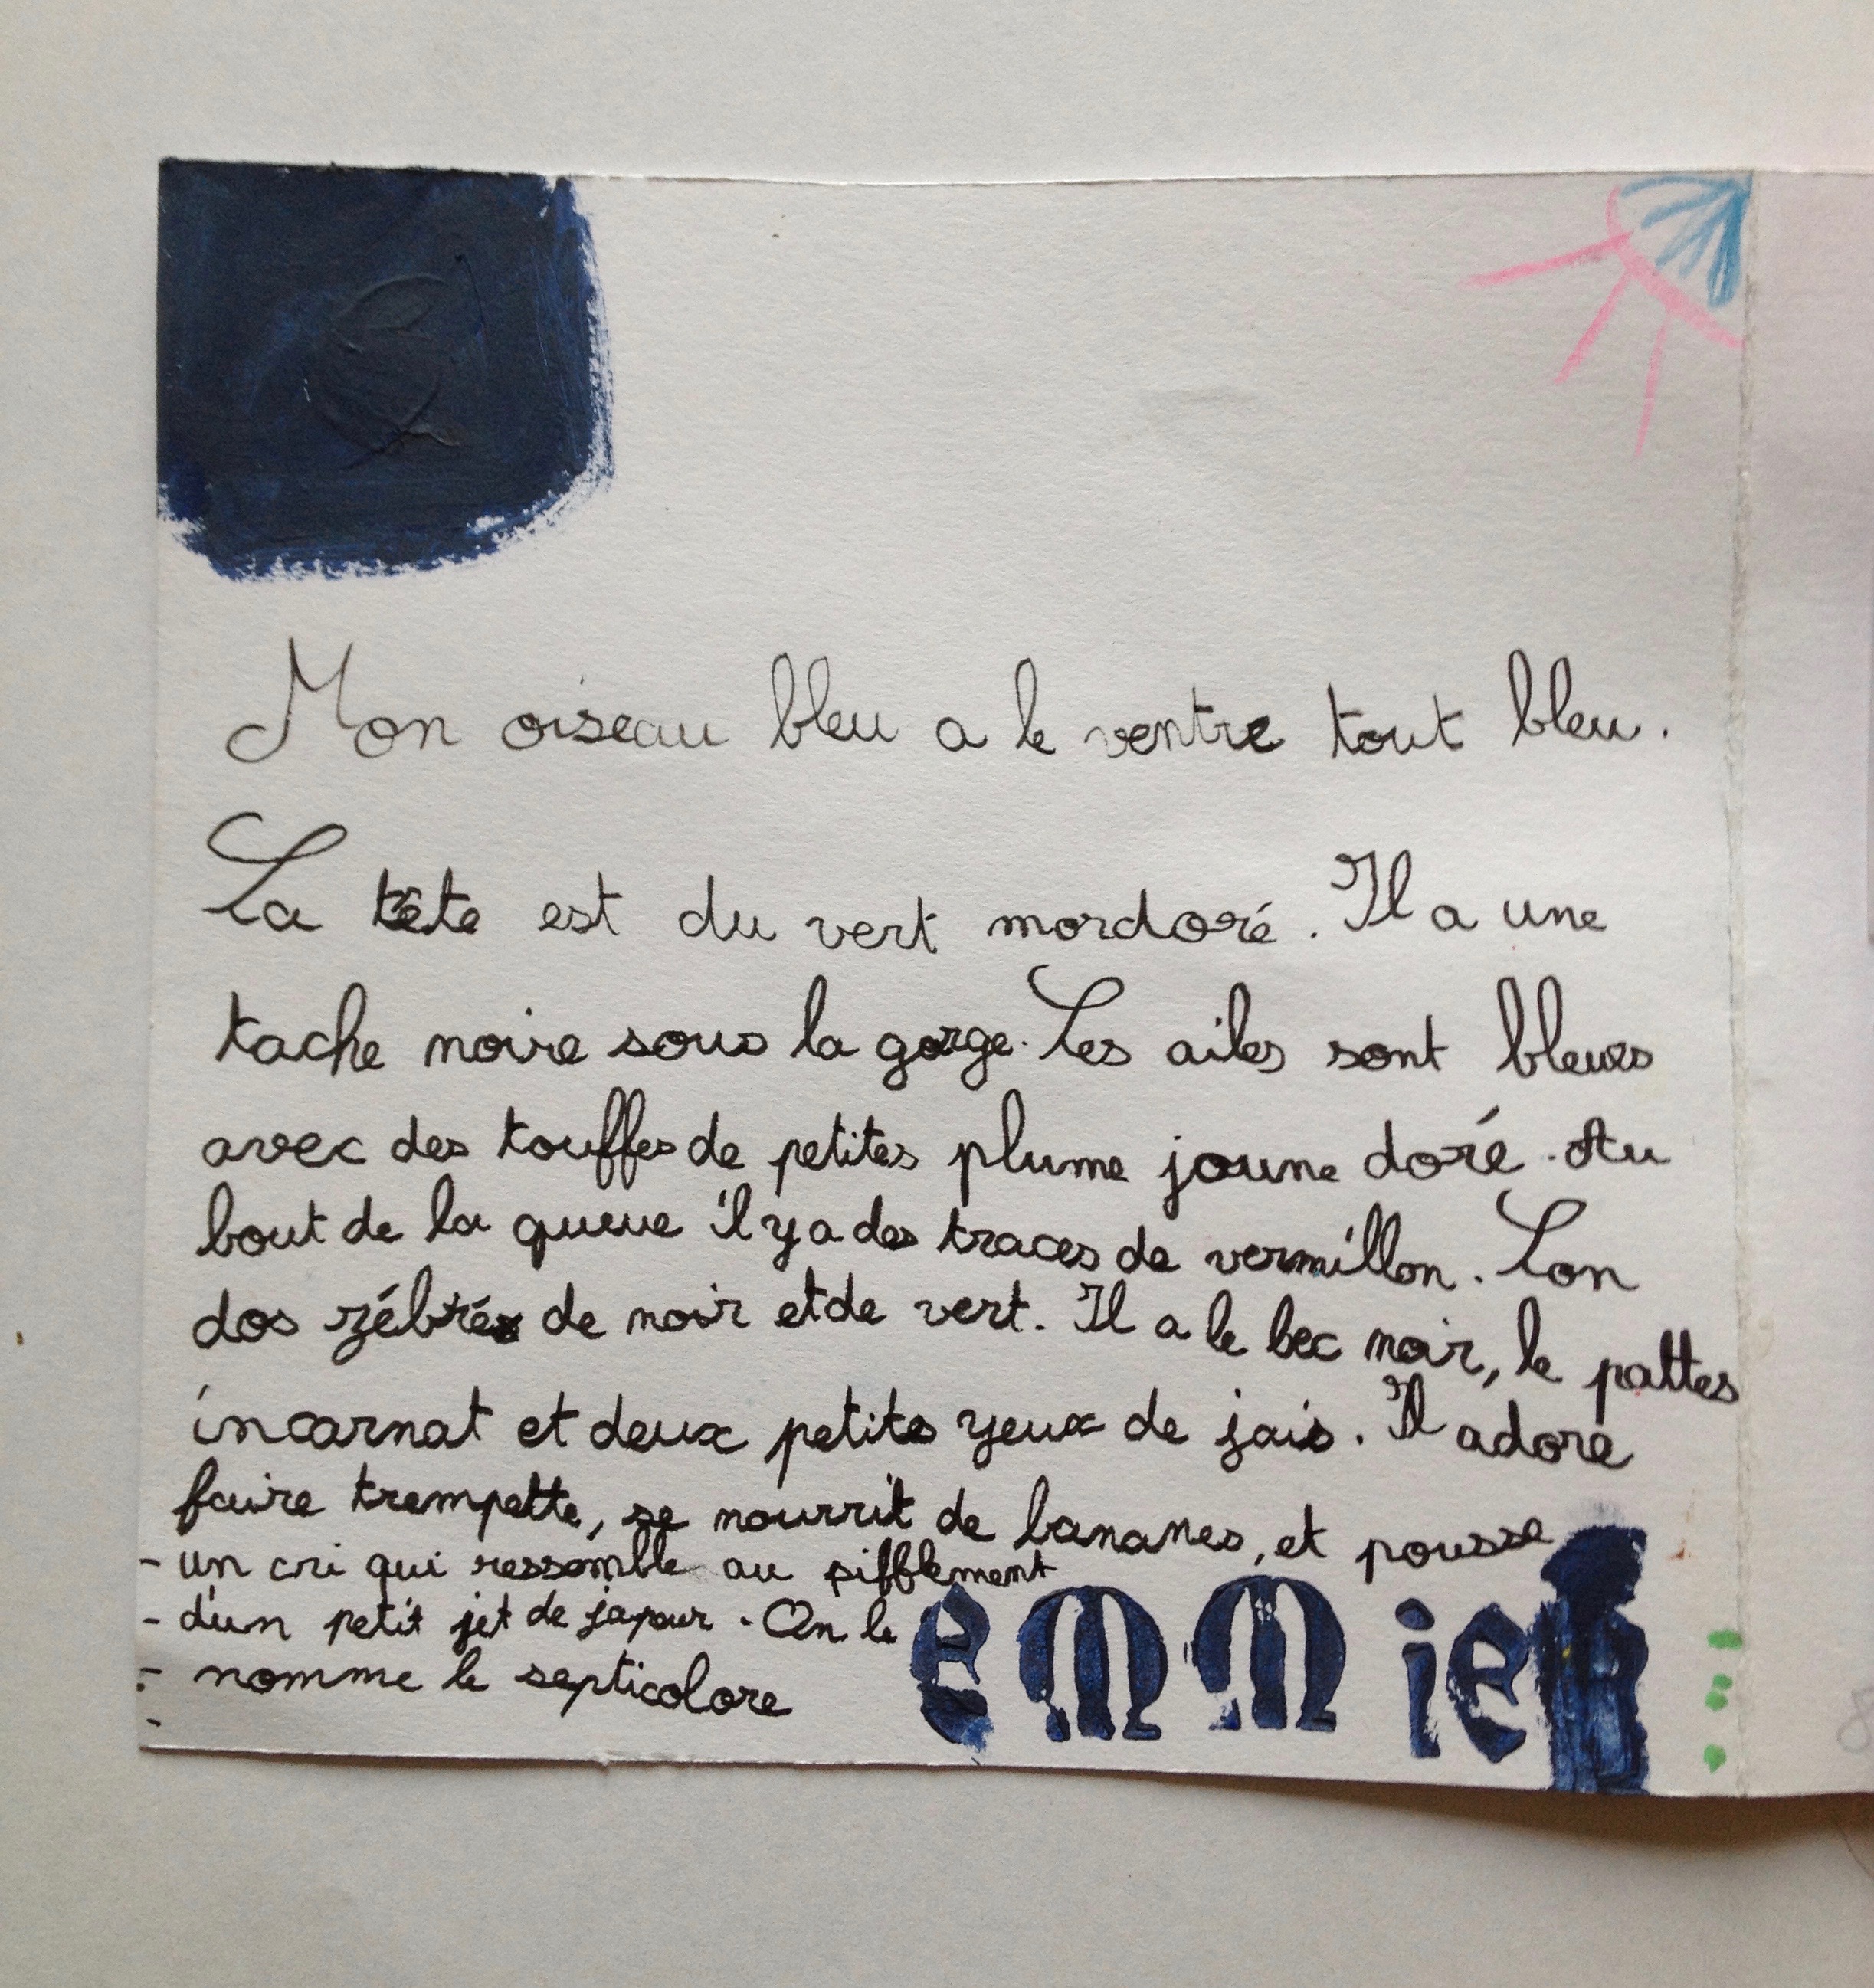 Mon oiseau bleu a le ventre tout bleu.
La tête est du vert mordoré. Il a une
tache noire sous la gorge. Les ailes sont bleues
avec des touffes de petites plume joune doré. Au
bout de la queue il y a des traces de vermillon. Son
dos zébré de noir et de vert. Il a le bec noir, le pattes
incarnat et deux petits yeux de jais. Il adore
faire trempette, se nourrit de bananes, et pousse
- un cri qui ressemble au sifflement
- d'un petit jet de japeur. On le
- nomme le septicolore
-
emmie